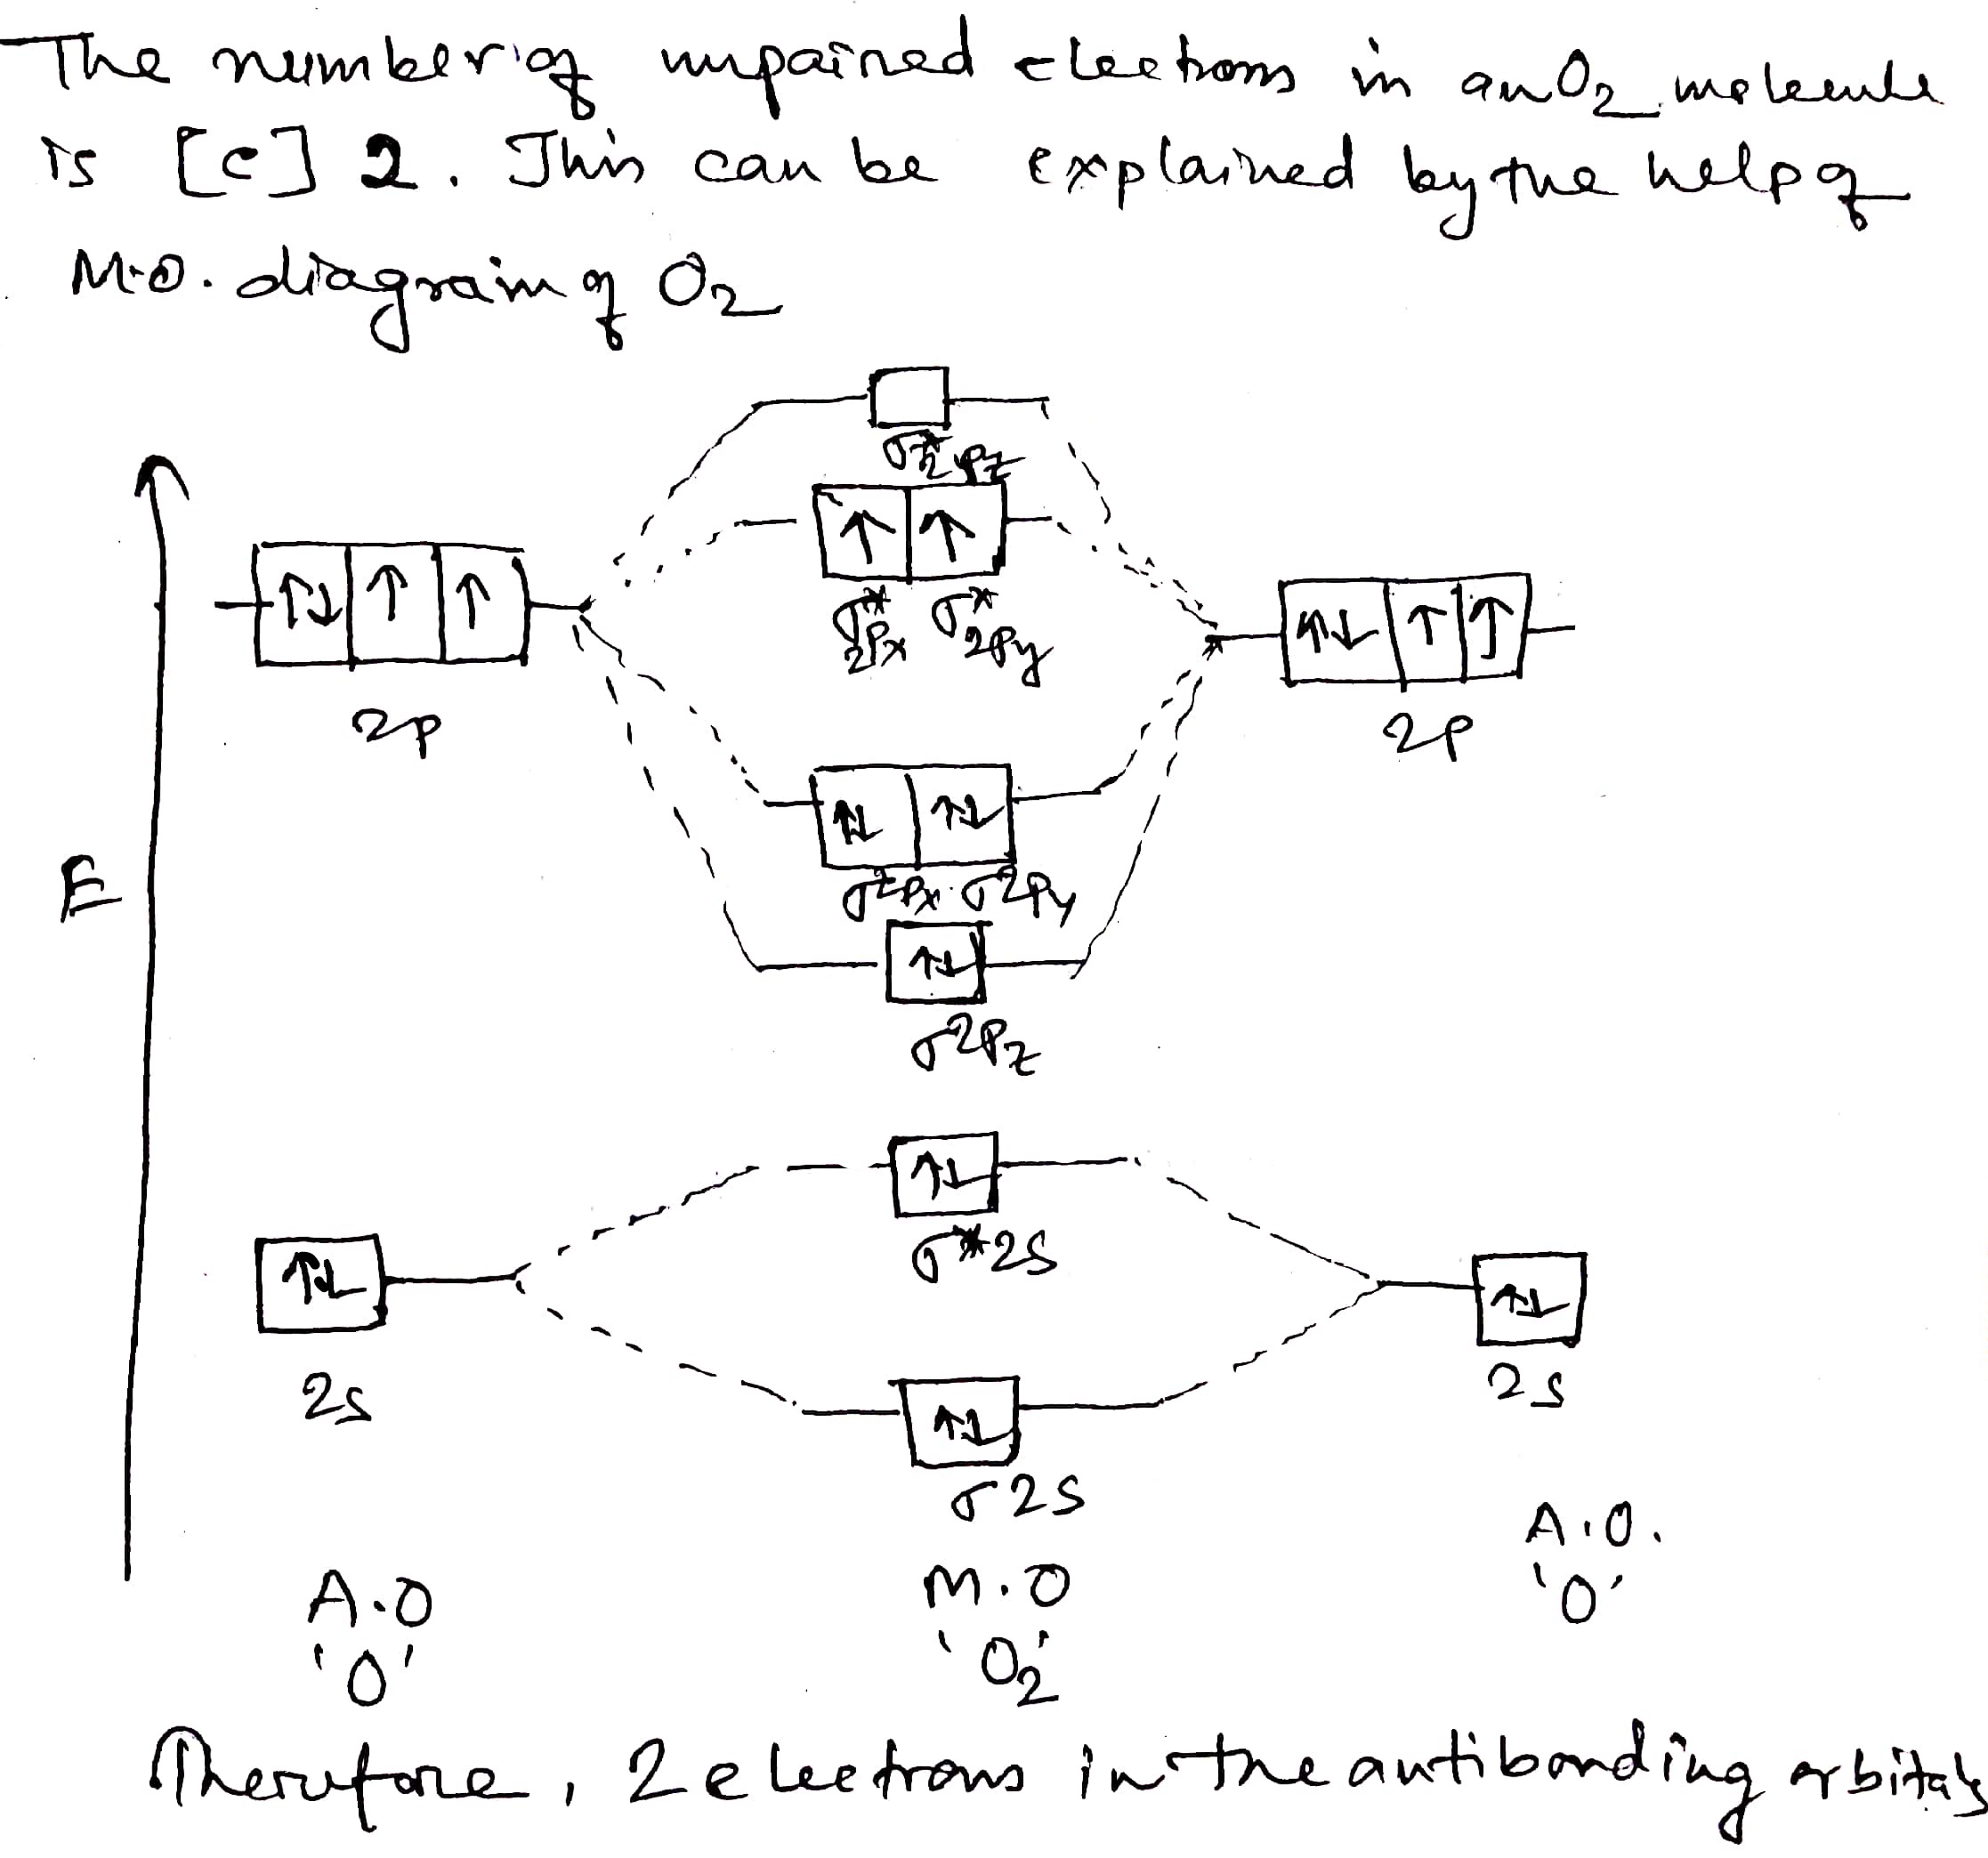 The number of unpaired electrons in an O2 molecule
is [c] 2. This can be explained by the help of
M.O. diagram of O2
σ*2pz
↑ ↑
↑↓ ↑ ↑
σ*2px σ*2py
↑↓ ↑ ↑
2p
2p
↑↓ ↑↓
E
σ2px σ2py
↑↓
σ2pz
↑↓
σ*2s
↑↓
↑↓
2s
2s
↑↓
σ2s
A.O.
'O'
A.O
'O'
M.O
'O2'
Therefore, 2 electrons in the antibonding orbitals